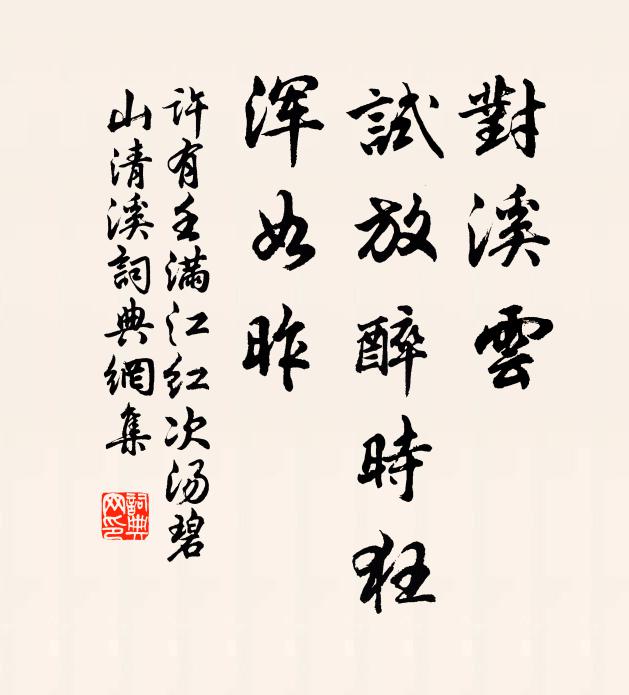 對溪雲
試放醉時狂
渾如昨
许有壬滿江红次汤碧
山清溪詞典網集
詞典
网印